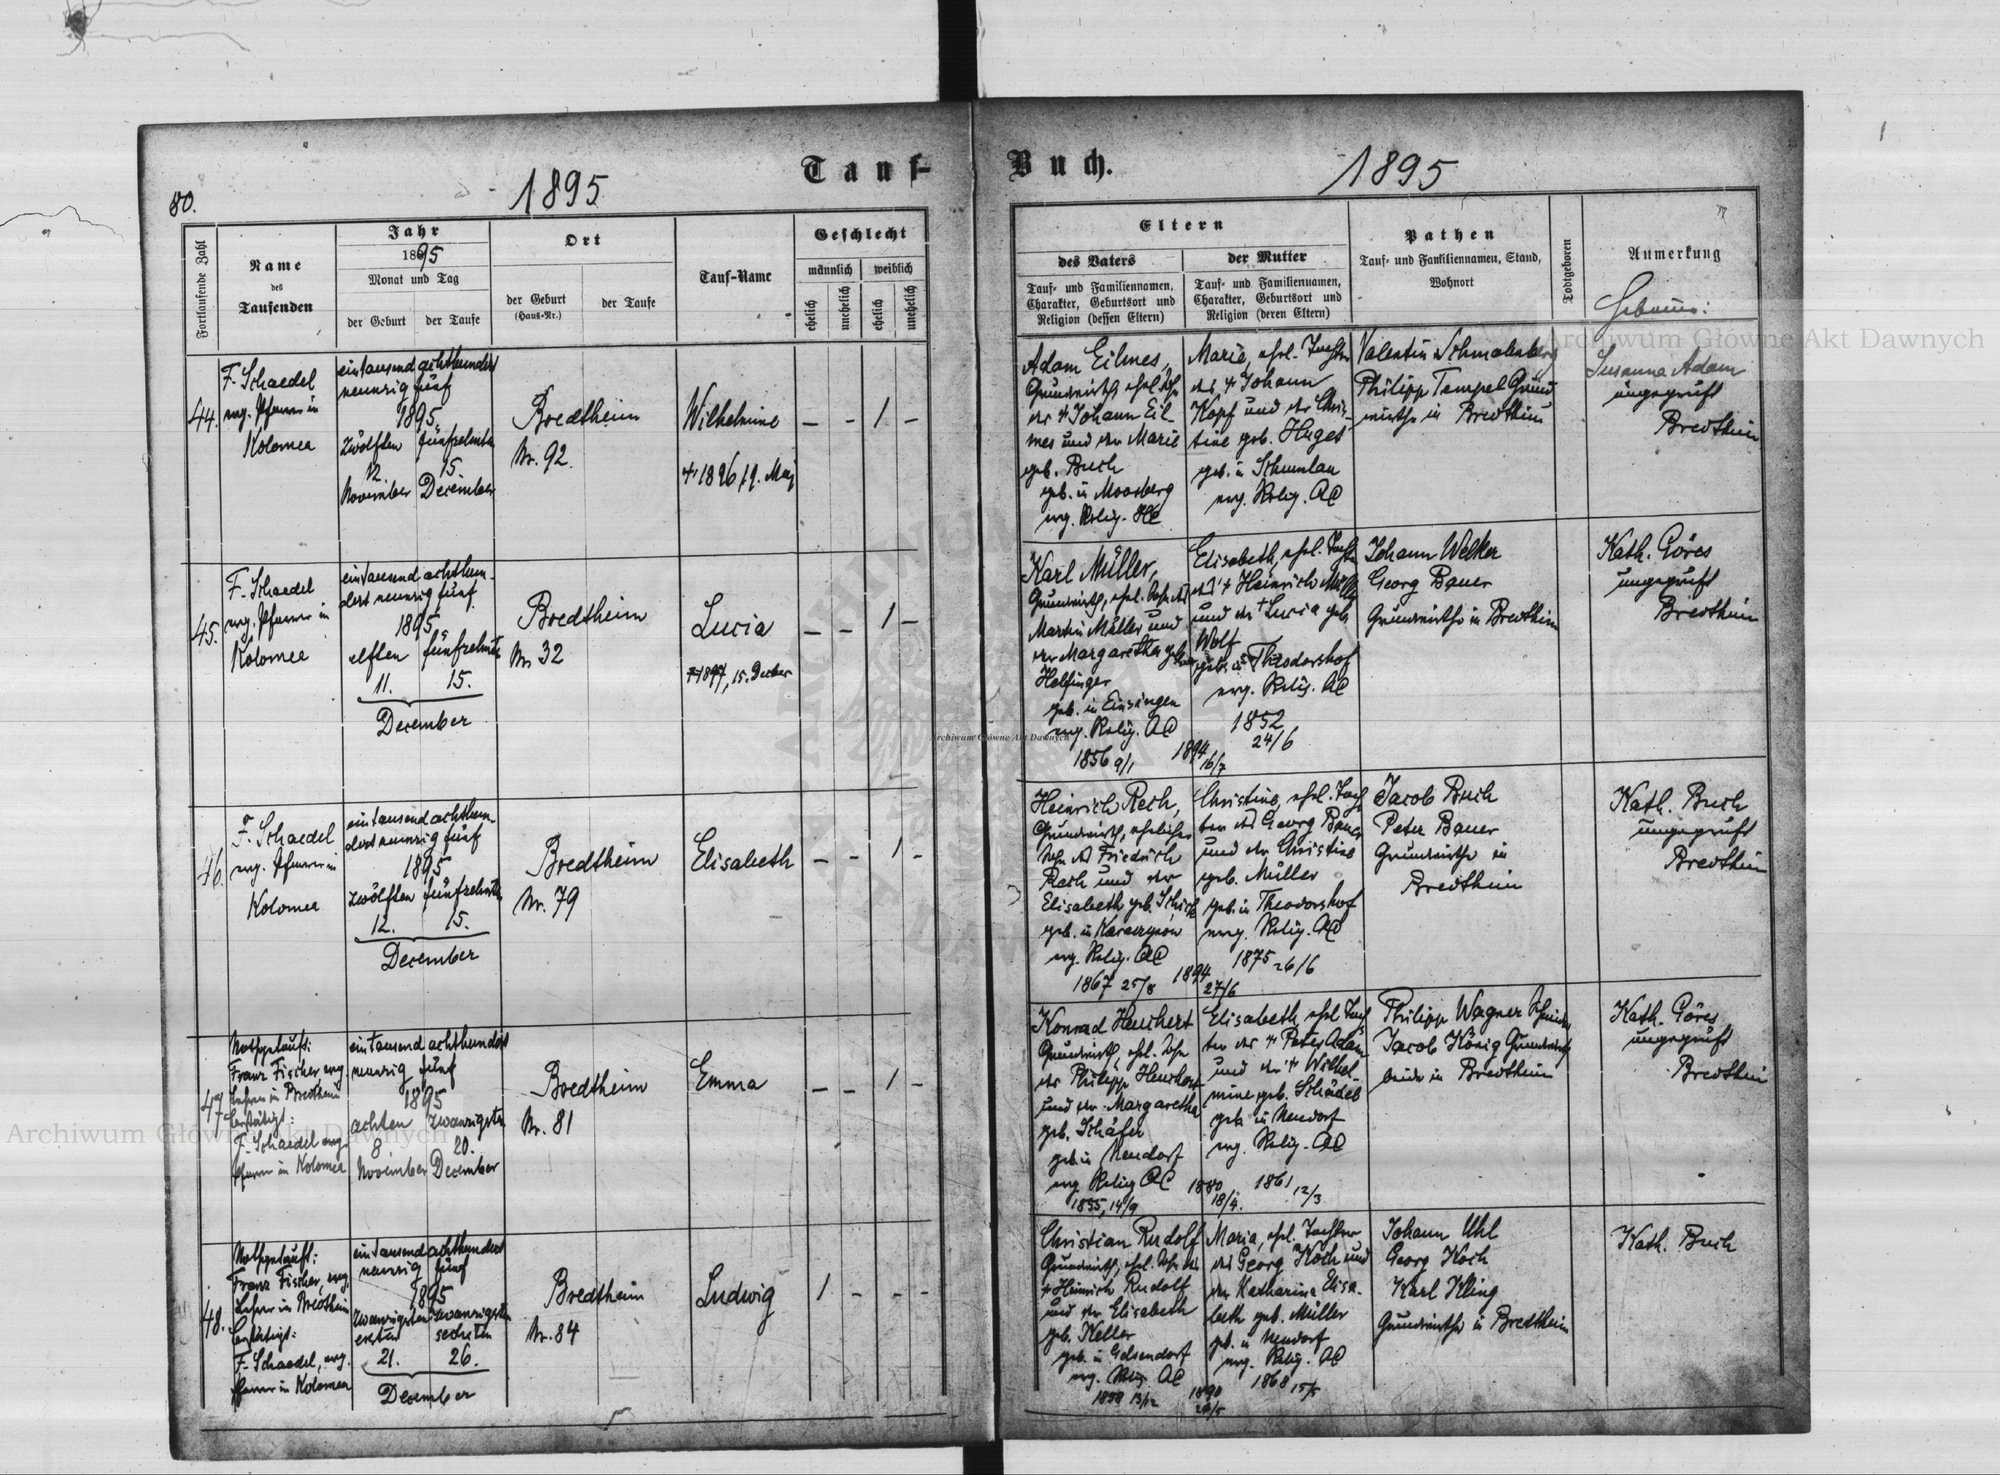 80.
1895
Tauf-
Fortlaufende Zahl
Name
des
Taufenden
Jahr
1895
Monat und Tag
der Geburt
der Taufe
Ort
der Geburt
(Haus-Nr.)
der Taufe
Tauf-Name
Geschlecht
männlich
weiblich
ehelich
unehelich
ehelich
unehelich
44.
F. Schaedel
evg. Pfarrer in
Kolomea
eintausend achthundert
neunzig fünf
1895
zwölften fünfzehnten
12. 15.
November December
Bredtheim
Nr. 92.
Wilhelmine
1896 19. Mai
- - 1 -
45.
F. Schaedel
evg. Pfarrer in
Kolomea
eintausend achthun-
dert neunzig fünf
1895
elften fünfzehnten
11. 15.
December
Bredtheim
Nr. 32
Lucia
1897, 15. December
- - 1 -
46.
F. Schaedel
evg. Pfarrer in
Kolomea
eintausend achthun-
dert neunzig fünf
1895
zwölften fünfzehnten
12. 15.
December
Bredtheim
Nr. 79
Elisabeth
- - 1 -
47.
Nothgetauft:
Franz Fischer evg.
Lehrer in Bredtheim
bestätigt:
F. Schaedel evg.
Pfarrer in Kolomea
eintausend achthundert
neunzig fünf
1895
achten zwanzigsten
8 20.
November December
Bredtheim
Nr. 81
Emma
- - 1 -
48.
Nothgetauft:
Franz Fischer, evg.
Lehrer in Bredtheim
bestätigt:
F. Schaedel, evg.
Pfarrer in Kolomea
eintausend achthundert
neunzig fünf
1895
zwanzigsten zwanzigsten
ersten sechsten
21. 26.
December
Bredtheim
Nr. 84
Ludwig
1 - - -
Buch.
1895
Eltern
des Vaters
Tauf- und Familiennamen,
Charakter, Geburtsort und
Religion (dessen Eltern)
der Mutter
Tauf- und Familiennamen,
Charakter, Geburtsort und
Religion (deren Eltern)
Pathen
Tauf- und Familiennamen, Stand,
Wohnort
Todtgeboren
Anmerkung
Hebamme:
Adam Eilmes,
Grundwirth, ehel. Sohn
des Johann Eil-
mes und der Marie
geb. Buch
geb. in Moosberg
evg. Relig. HC
Marie, ehel. Tochter
des Johann
Kopf und der Chris-
tine geb. Huget
geb. in Schumlau
evg. Relig. AC
Valentin Schmalenberg
Philipp Tempel Grund
wirthe in Bredtheim
Susanna Adam
ungeprüft
Bredtheim
Karl Müller,
Grundwirth, ehel. Sohn des
Martin Müller und
der Margaretha geb.
Helfinger
geb. in Einsingen
evg. Relig. AC
1856 9/1
1894
16/7
Elisabeth, ehel. Tochter
des Heinrich Müller
und der Lucia geb.
Wolf
geb. in Theodorshof
evg. Relig. AC
1852
24/6
Johann Welker
Georg Bauer
Grundwirthe in Bredtheim
Kath. Göres
ungeprüft
Bredtheim
Heinrich Rech,
Grundwirth, ehelicher
Sohn des Friedrich
Rech und der
Elisabeth geb. Schick
geb. in
evg. Relig. AC
1867 25/8
1894
27/6
Christine, ehel. Toch
ter des Georg Bauer
und der Christine
geb. Müller
geb. in Theodorshof
evg. Relig. AC
1875 26/6
Jacob Buch
Peter Bauer
Grundwirthe in
Bredtheim
Kath. Buch
ungeprüft
Bredtheim
Konrad Heuchert
Grundwirth, ehel. Sohn
des Philipp Heuchert
und der Margaretha
geb. Schäfer
geb. in Neudorf
evg Relig AC
1855, 14/9
1880
18/4.
Elisabeth ehel Toch
ter des Peter Adam
und der Wilhel
mine geb. Schädel
geb. in Neudorf
evg. Relig. AC
1861 12/3
Philipp Wagner
Jacob König Grundwirth
beide in Bredtheim
Kath. Göres
ungeprüft
Bredtheim
Christian Rudolf
Grundwirth, ehel. Sohn des
Heinrich Rudolf
und der Elisabeth
geb. Keller
geb. in Gelsendorf
evg. Relig. AC
1858 13/12
1890
26/5
Maria, ehel. Tochter
des Georg Koch und
der Katharina Elisa-
beth geb. Müller
geb. in Neudorf
evg. Relig. AC
1868 15/5
Johann Uhl
Georg Koch
Karl Illing
Grundwirthe in Bredtheim
Kath. Buch
Archiwum Główne Akt Dawnych
Archiwum Główne Akt Dawnych
Archiwum Główne Akt Dawnych